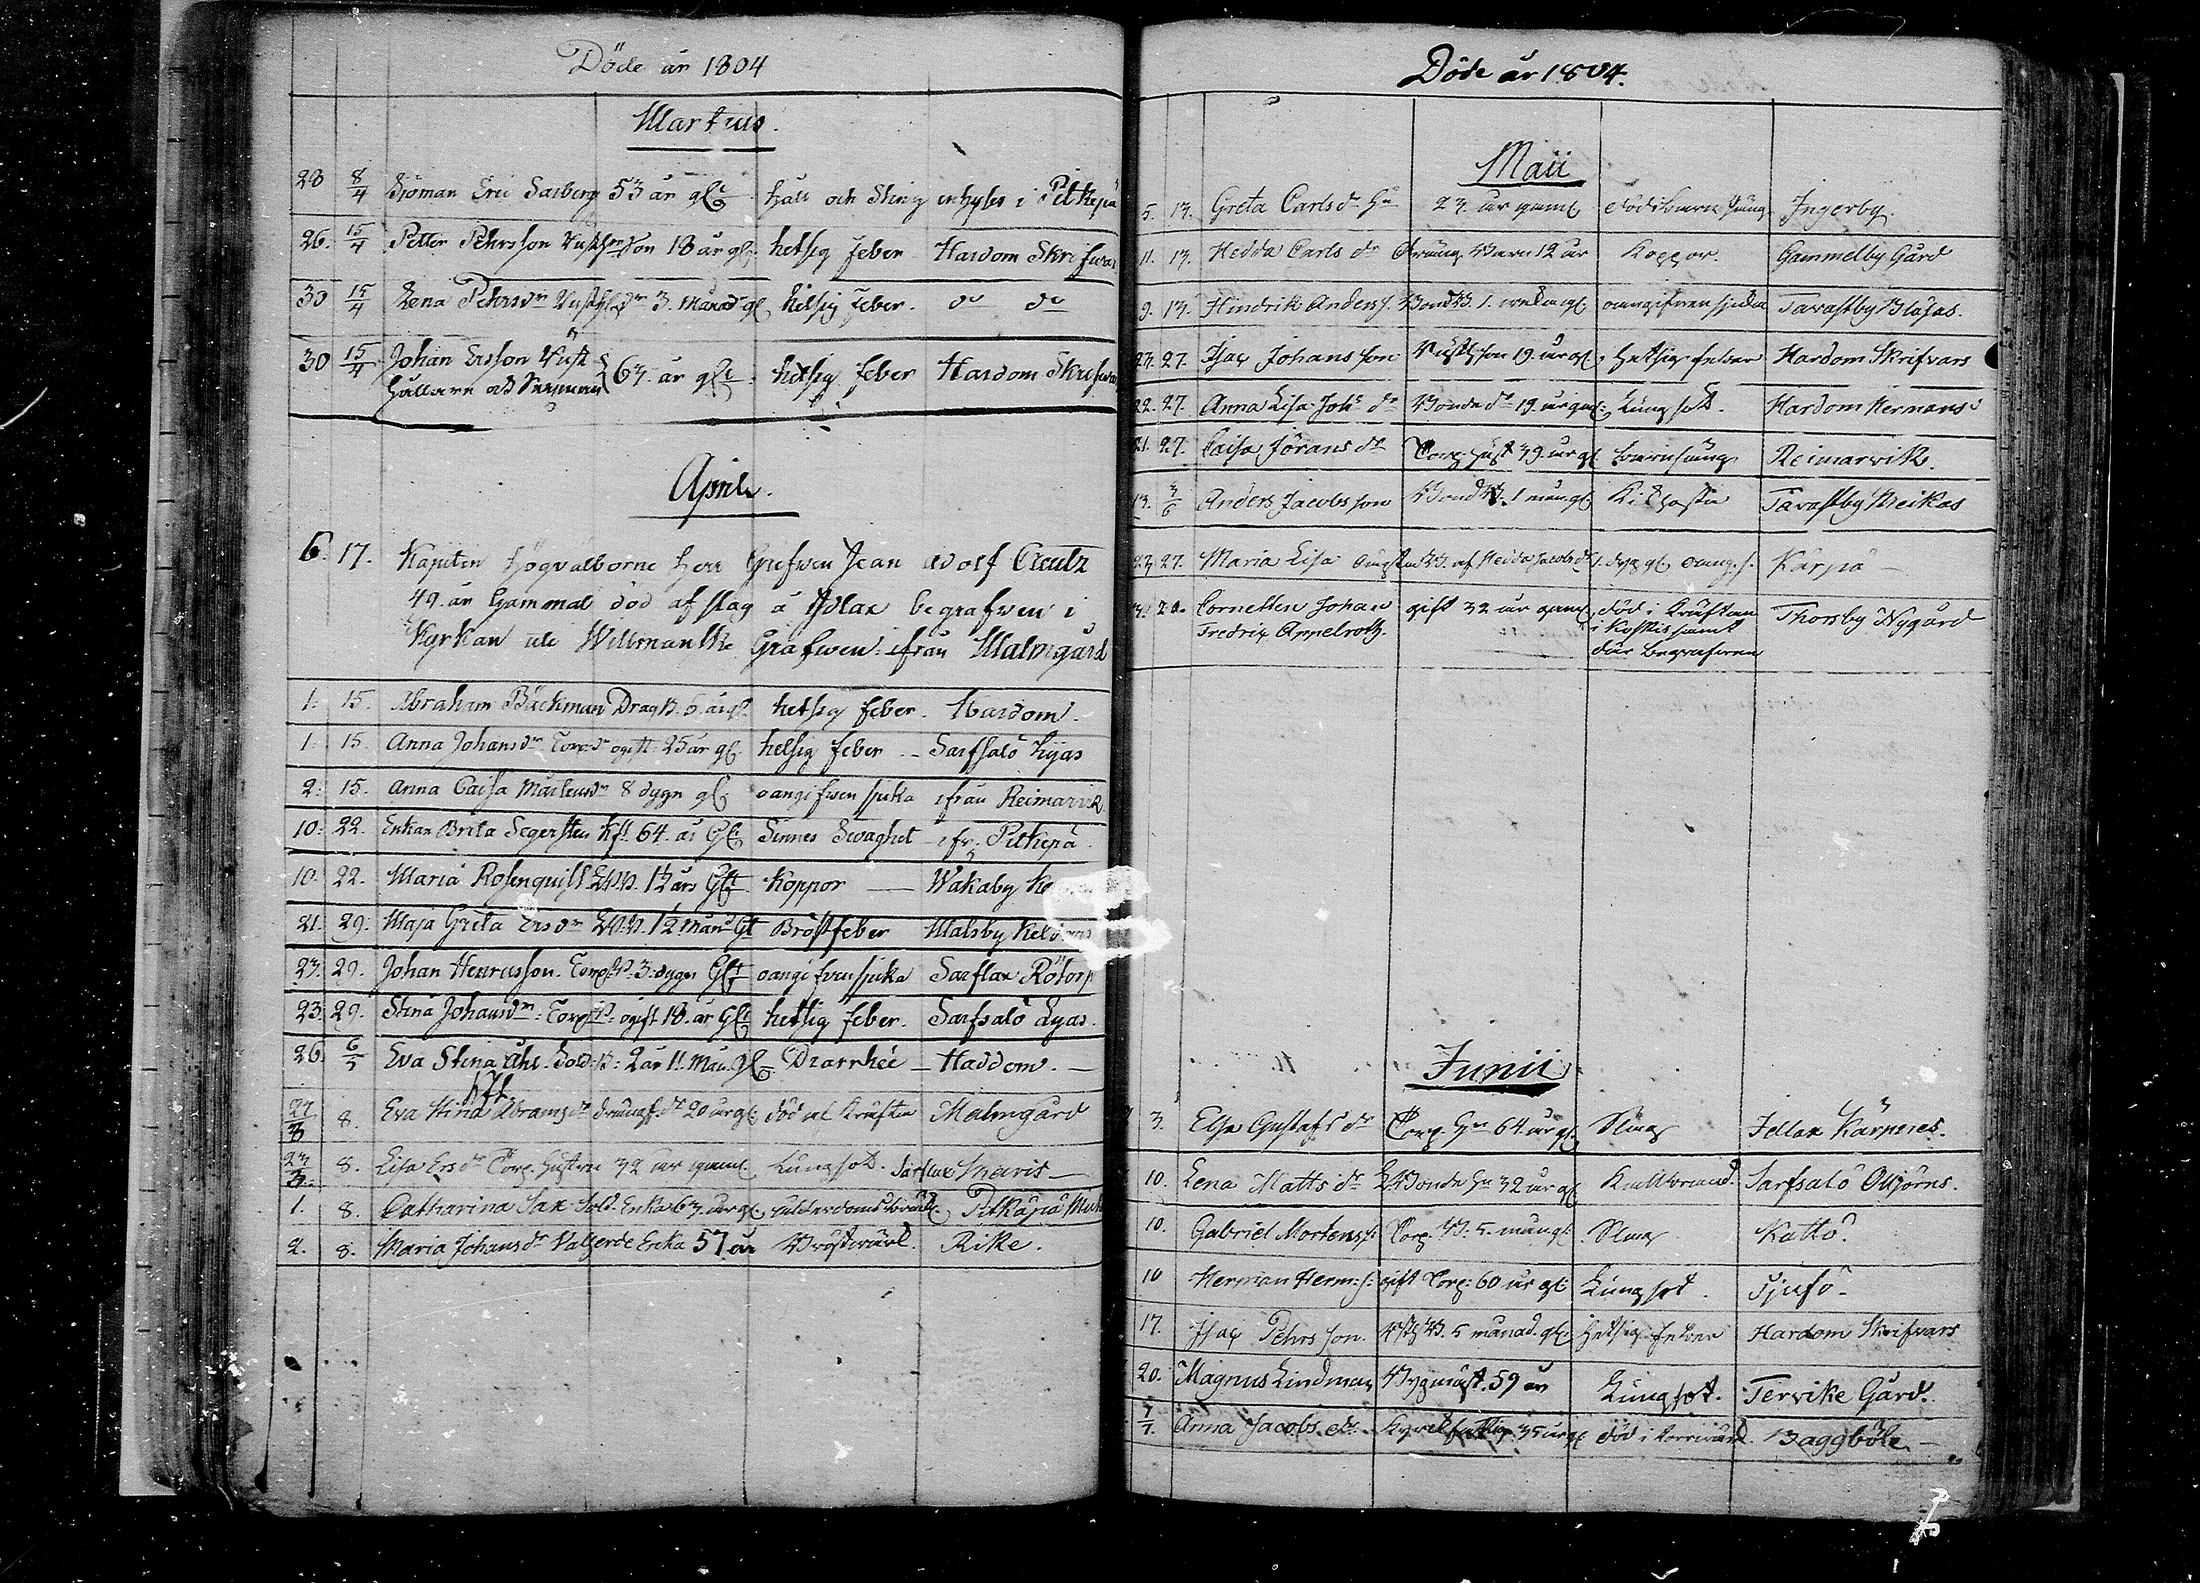 Döde år 1804
Martius.
28 8/4 Sjöman Eric Sarberg 53 år gl håll och Sting inhyses i Pitkepä
26. 15/4 Petter Pehrsson son 18 år gl hetsig feber Hardom Skrifwars
30 15/4 Lena Pehrsdr 3. Månadr gl hetsig feber. do do
30 15/4 Johan Ersson
hållaren och 63. år gl hetsig feber Hardom Skrifwars
April.
6. 17. Kapiten Högvälborne Herr Grefwen Jean Adolf Creutz
49. år Gammal död af slag å Idlax begrafwen i
Kyrkan uti Willmanska Grafwen ifrån Malmgård
1. 15. Abraham Bäckman Drag B. 6. år gl. hetsig feber. Hardom.
1. 15. Anna Johansdr Torp: dr ogift 25 år gl hetsig feber Sarfsalö Lijas
2. 15. Anna Caisa 8 dygn gl oangifwen sjuka ifrån Reimarvik
10. 22. Enkan Brita Segersten 64. år Gl Sinnes Swaghet ifr. Pitkepä
10. 22. Maria Rosenquist 1½ års Glt Koppor Wakaby
21. 29. Maja Greta Ersdr 1½ Mån: Gl Bröstfeber Malsby
23. 29. Johan Henricsson. Torp B. 3. dygn Glt oangifven sjuka Sarflax Rötorp
23. 29. Stina Johansdr: Torp ogift 18. år Glt hetsig feber. Sarfsalö Lyas.
26 6/5 Eva Stina Ahl. Sold: B: 2 år 11. Mån. Gl Diarrhée Haddom.
27/3 8. Eva Stina Abramsdr dr 20 år gl död af Kräftan Malmgård
23/3 8. Lisa Ersdr Torp. Hustru 32 år gaml. Lungsot. Sarflax Skaris
1. 8. Catharina Sax Sold. Enka 63. år gl. Pitkäpä
2. 8. Maria Johansdr Enka 57 år Bröstvärk. Rike.
Döde år 1804.
Maii
5. 13. Greta Carlsdr Hu 23. år gaml Ingerby.
11. 13. Hedda Carlsdr Dräng Barn 12 år Koppor. Gammelby Gård
9. 13. Hindrik Anders s. Bond B. 1. gl. oangifven sjuka Tavastby Blåsas.
23. 27. Isac Johansson son 19. år gl. Hetsig feber Hardom Skrifvars
22. 27. Anna Lisa Johs dr Bonde dr 19. år gl: Lungsot. Hardom Hermans
21. 27. Caisa Jörans dr Torp. Hust 39. år gl. barnsäng Reimarvik.
13. 3/6 Anders Jacobsson Bond B. 1 mån. gl. Kikhosta Tavastby Meikas
23. 27. Maria Lisa B. af Hedda Jacobs dr gl. Kärpä
20. Cornetten Johan gift 32 år gaml död i Kräftan Thorsby Nygård
Fredric Appelroth. i samt
där begrafven
Junii
3. Elsa Gustafs dr Torp. Hu 64. år gl. Slag Idlax Kärperes.
10. Lena Matts dr Bonde Hu 32 år gl Kallbrand. Sarfsalö Ollbjörns.
10. Gabriel Mortens s. Torp. B. 5. mån gl: Slag Kattö.
10 Herman Herm: s. gift Torp: 60 år gl: Lungsot. Tjusö.
17. Isac Pehrsson. B. 5 månad. gl: Hetsig feber Hardom Skrifvars
20. Magnus Lindman Byggmäst. 59 år Lungsot. Tervike Gård.
1/7. Anna Jacobs dr 35 år gl död i Baggböle